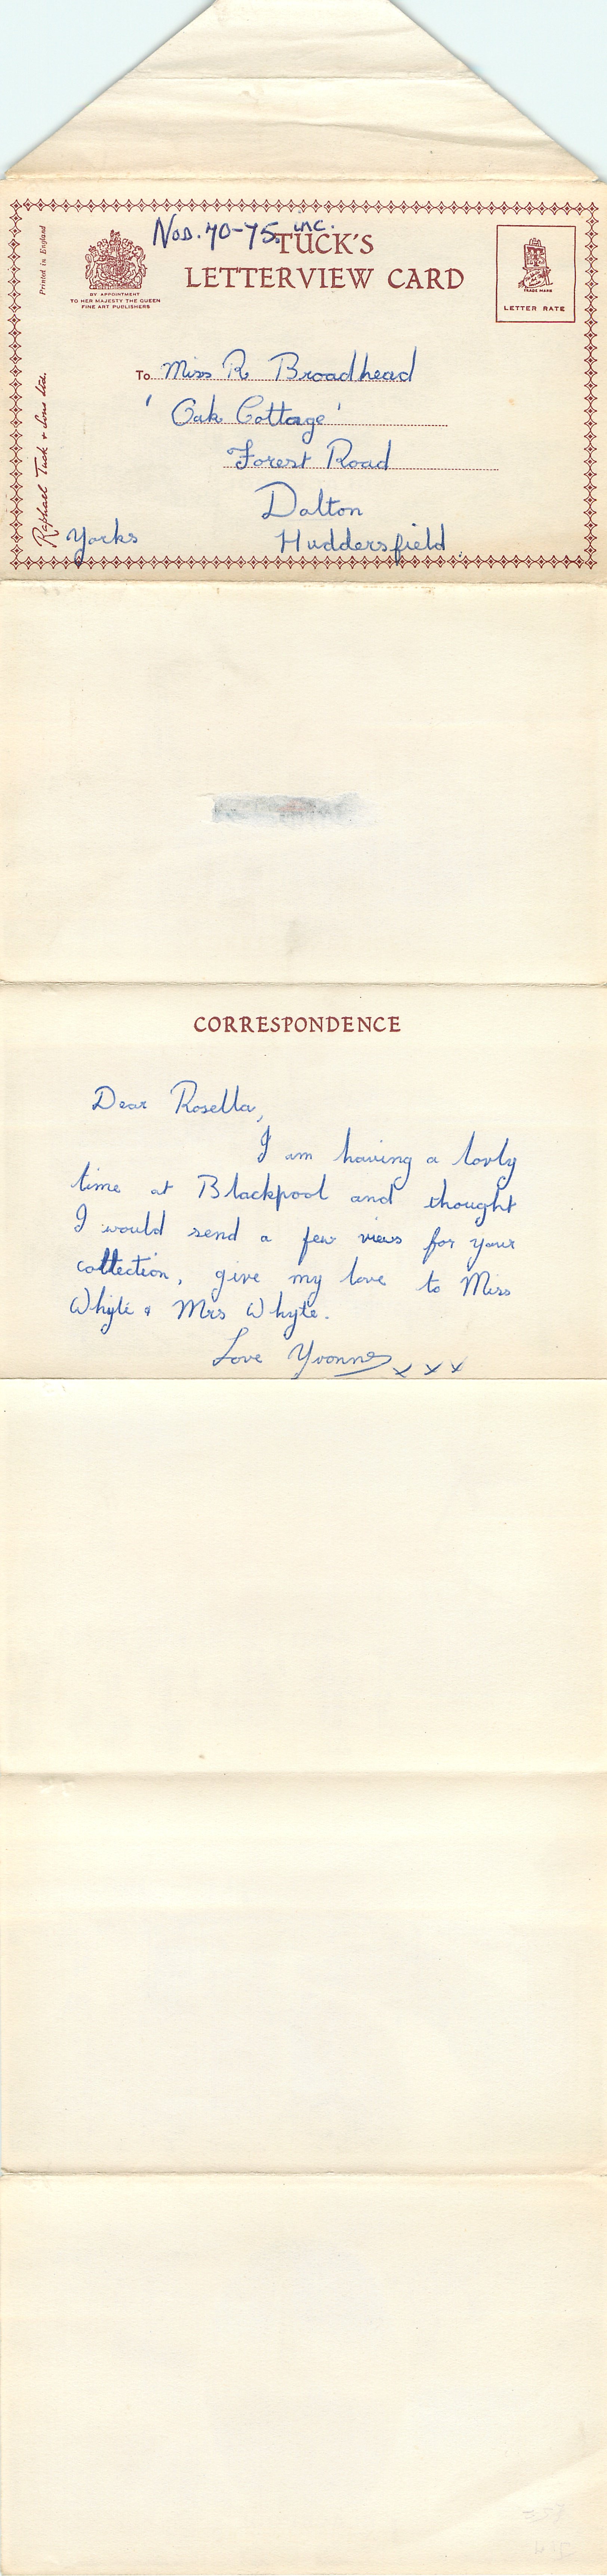 Nos. 70-75. inc.
TUCK'S
LETTERVIEW CARD
Printed in England
BY APPOINTMENT
TO HER MAJESTY THE QUEEN
FINE ART PUBLISHERS
TRADE MARK
LETTER RATE
Raphael Tuck & Sons Ltd.
To Miss R Broadhead
'Oak Cottage'
Forest Road
Dalton
Yorks Huddersfield.
CORRESPONDENCE
Dear Rosella,
I am having a lovly
time at Blackpool and thought
I would send a few views for your
collection, give my love to Miss
Whyte & Mrs Whyte.
Love Yvonne x x x